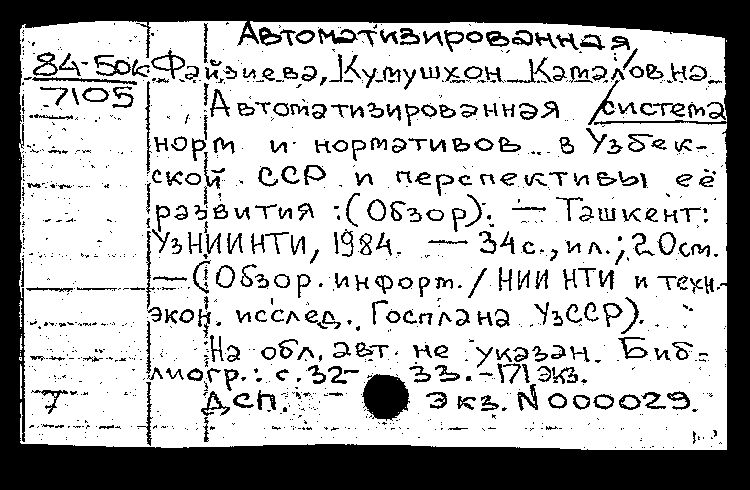 Автоматизированная
84-50к Файзиева, Кумушхон Камаловна
7105 Автоматизированная система
норм и нормативов в Узбек-
ской ССР и перспективы её
развития :(Обзор). — Ташкент:
УзНИИНТИ, 1984. — 34с., ил.; 20см.
— (Обзор. информ. / НИИ НТИ и техн.-
экон. исслед. Госплана УзССР).
На обл. авт. не указан. Биб-
лиогр.: с. 32-33. - 171 экз.
7 ДСП. Экз. N 000029.